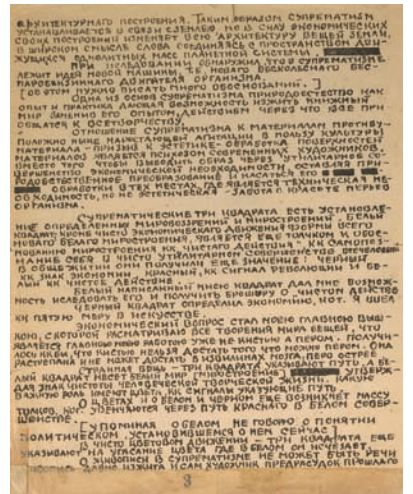 АРХИТЕКТУРНАГО ПОСТРОЕНИЯ. ТАКИМ ОБРАЗОМ СУПРЕМАТИЗМ
УСТАНАВЛИВАЕТСЯ В СВЯЗИ С ЗЕМЛЕЮ НО В СИЛУ ЭКОНОМИЧЕСКИХ
СВОИХ ПОСТРОЕНИЙ ИЗМЕНЯЕТ ВСЮ АРХИТЕКТУРУ ВЕЩЕЙ ЗЕМЛИ,
В ШИРОКОМ СМЫСЛЕ СЛОВА СОЕДИНЯЯСЬ С ПРОСТРАНСТВОМ ДВИ-
ЖУЩИХСЯ ОДНОЛИТНЫХ МАСС ПЛАНЕТНОЙ СИСТЕМЫ.
ПРИ ИСЛЕДОВАНИИ ОБНАРУЖИЛ, ЧТО В СУПРЕМАТИЗМЕ
ЛЕЖИТ ИДЕЯ НОВОЙ МАШИНЫ, Т.Е. НОВАГО БЕСКОЛЕСНАГО БЕС-
ПАРОБЕНЗИННАГО ДВИГАТЕЛЯ ОРГАНИЗМА.
[ОБ ЭТОМ НУЖНО ПИСАТЬ МНОГО ОБОСНОВАНИЙ.]
ОДНА ИЗ ОСНОВ СУПРЕМАТИЗМА ПРИРОДОЕСТЕСТВО КАК
ОПЫТ И ПРАКТИКА ДАЮЩАЯ ВОЗМОЖНОСТЬ ИЗЖИТЬ КНИЖНЫЙ
МИР ЗАМЕНИВ ЕГО ОПЫТОМ, ДЕЙСТВИЕМ ЧЕРЕЗ ЧТО ВСЕ ПРИ-
ОБЩАТСЯ К ВСЕТВОРЧЕСТВУ.
ОТНОШЕНИЕ СУПРЕМАТИЗМА К МАТЕРИАЛАМ ПРОТИВУ-
ПОЛОЖНО НЫНЕ НАРАСТАЮЩЕЙ АГИТАЦИИ В ПОЛЬЗУ КУЛЬТУРЫ
МАТЕРИАЛА - ПРИЗЫВ К ЭСТЕТИКЕ - ОБРАБОТКА ПОВЕРХНОСТЕЙ
МАТЕРИАЛОВ ЯВЛЯЕТСЯ ПСИХОЗОМ СОВРЕМЕННЫХ ХУДОЖНИКОВ.
ВМЕСТО ТОГО ЧТОБЫ ВЫВОДИТЬ ОБРАЗ ЧЕРЕЗ УТИЛИТАРНОЕ СО-
ВЕРШЕНСТВО ЭКОНОМИЧЕСКОЙ НЕОБХОДИМОСТИ, ОСТАВЛЯЯ ПРИ-
РОДОЕСТЕСТВЕННОЕ ПРЕОБРАЗОВАНИЕ И КАСАТЬСЯ ЕГО
ОБРАБОТКИ В ТЕХ МЕСТАХ, ГДЕ ЯВЛЯЕТСЯ ТЕХНИЧЕСКАЯ НЕ-
ОБХОДИМОСТЬ, НО НЕ ЭСТЕТИЧЕСКАЯ - ЗАБОТА О КРАСОТЕ ПЕРЬЕВ
ОРГАНИЗМА.
СУПРЕМАТИЧЕСКИЕ ТРИ КВАДРАТА ЕСТЬ УСТАНОВЛЕ-
НИЕ ОПРЕДЕЛЕННЫХ МИРОВОЗЗРЕНИЙ И МИРОСТРОЕНИЙ. БЕЛЫЙ
КВАДРАТ, КРОМЕ ЧИСТО ЭКОНОМИЧЕСКАГО ДВИЖЕНИЯ ФОРМЫ ВСЕГО
НОВАГО БЕЛАГО МИРОСТРОЕНИЯ, ЯВЛЯЕТСЯ ЕЩЕ ТОЛЧКОМ К ОБОС-
НОВАНИЮ МИРОСТРОЕНИЯ КК "ЧИСТАГО ДЕЙСТВИЯ", КК САМОПОЗ-
НАНИЕ СЕБЯ В ЧИСТО УТИЛИТАРНОМ СОВЕРШЕНСТВЕ
В ОБЩЕЖИТИИ ОНИ ПОЛУЧИЛИ ЕЩЕ ЗНАЧЕНИЕ: ЧЕРНЫЙ
КК ЗНАК ЭКОНОМИИ, КРАСНЫЙ, КК СИГНАЛ РЕВОЛЮЦИИ И БЕ-
ЛЫЙ КК ЧИСТОЕ ДЕЙСТВИЕ.
БЕЛЫЙ НАПИСАННЫЙ МНОЮ КВАДРАТ ДАЛ МНЕ ВОЗМОЖ-
НОСТЬ ИСЛЕДОВАТЬ ЕГО И ПОЛУЧИТЬ БРОШЮРУ О "ЧИСТОМ ДЕЙСТВИИ"
ЧЕРНЫЙ КВАДРАТ ОПРЕДЕЛИЛ ЭКОНОМИЮ, КОТ. Я ВВЕЛ
КК ПЯТУЮ МЕРУ В ИСКУССТВЕ.
ЭКОНОМИЧЕСКИЙ ВОПРОС СТАЛ МОЕЮ ГЛАВНОЮ ВЫШ-
КОЮ, С КОТОРОЙ РАСМАТРИВАЮ ВСЕ ТВОРЕНИЯ МИРА ВЕЩЕЙ, ЧТО
ЯВЛЯЕТСЯ ГЛАВНОЮ МОЕЮ РАБОТОЮ УЖЕ НЕ КИСТЬЮ А ПЕРОМ. ПОЛУЧИ-
ЛОСЬ ККБЫ, ЧТО КИСТЬЮ НЕЛЬЗЯ ДОСТАТЬ ТОГО ЧТО МОЖНО ПЕРОМ. ОНА
РАСТРЕПАНА И НЕ МОЖЕТ ДОСТАТЬ В ИЗВИЛИНАХ МОЗГА, ПЕРО ОСТРЕЕ.
СТРАННАЯ ВЕЩЬ - ТРИ КВАДРАТА УКАЗЫВАЮТ ПУТЬ, А БЕ-
ЛЫЙ КВАДРАТ НЕСЕТ БЕЛЫЙ МИР (МИРОСТРОЕНИЕ) УТВЕРЖ-
ДАЯ ЗНАК ЧИСТОТЫ ЧЕЛОВЕЧЕСКОЙ ТВОРЧЕСКОЙ ЖИЗНИ. КАКУЮ
ВАЖНУЮ РОЛЬ ИМЕЮТ ЦВЕТА, КК СИГНАЛЫ УКАЗУЮЩИЕ ПУТЬ.
О ЦВЕТАХ И О БЕЛОМ И ЧЕРНОМ ЕЩЕ ВОЗНИКНЕТ МАССУ
ТОЛКОВ, КОТ. УВЕНЧАЮТСЯ ЧЕРЕЗ ПУТЬ КРАСНАГО В БЕЛОМ СОВЕР-
ШЕНСТВЕ.
[УПОМИНАЯ О БЕЛОМ НЕ ГОВОРЮ О ПОНЯТИИ
ПОЛИТИЧЕСКОМ, УСТАНОВИВШЕМСЯ О НЕМ СЕЙЧАС]
В ЧИСТО ЦВЕТОВОМ ДВИЖЕНИИ - ТРИ КВАДРАТА ЕЩЕ
УКАЗЫВАЮТ НА УГАСАНИЕ ЦВЕТА ГДЕ В БЕЛОМ ОН ИСЧЕЗАЕТ.
О ЖИВОПИСИ В СУПРЕМАТИЗМЕ НЕ МОЖЕТ БЫТЬ РЕЧИ
ЖИВОПИСЬ ДАВНО ИЗЖИТА И САМ ХУДОЖНИК ПРЕДРАСУДОК ПРОШЛАГО
3